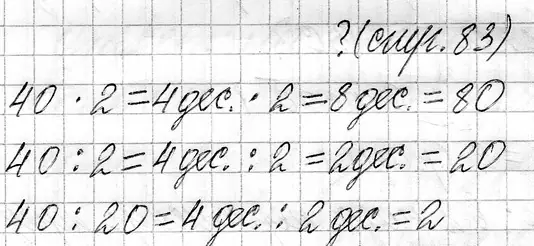 ?(стр. 83)
40 · 2 = 4 дес. · 2 = 8 дес. = 80
40 : 2 = 4 дес. : 2 = 2 дес. = 20
40 : 20 = 4 дес. : 2 дес. = 2